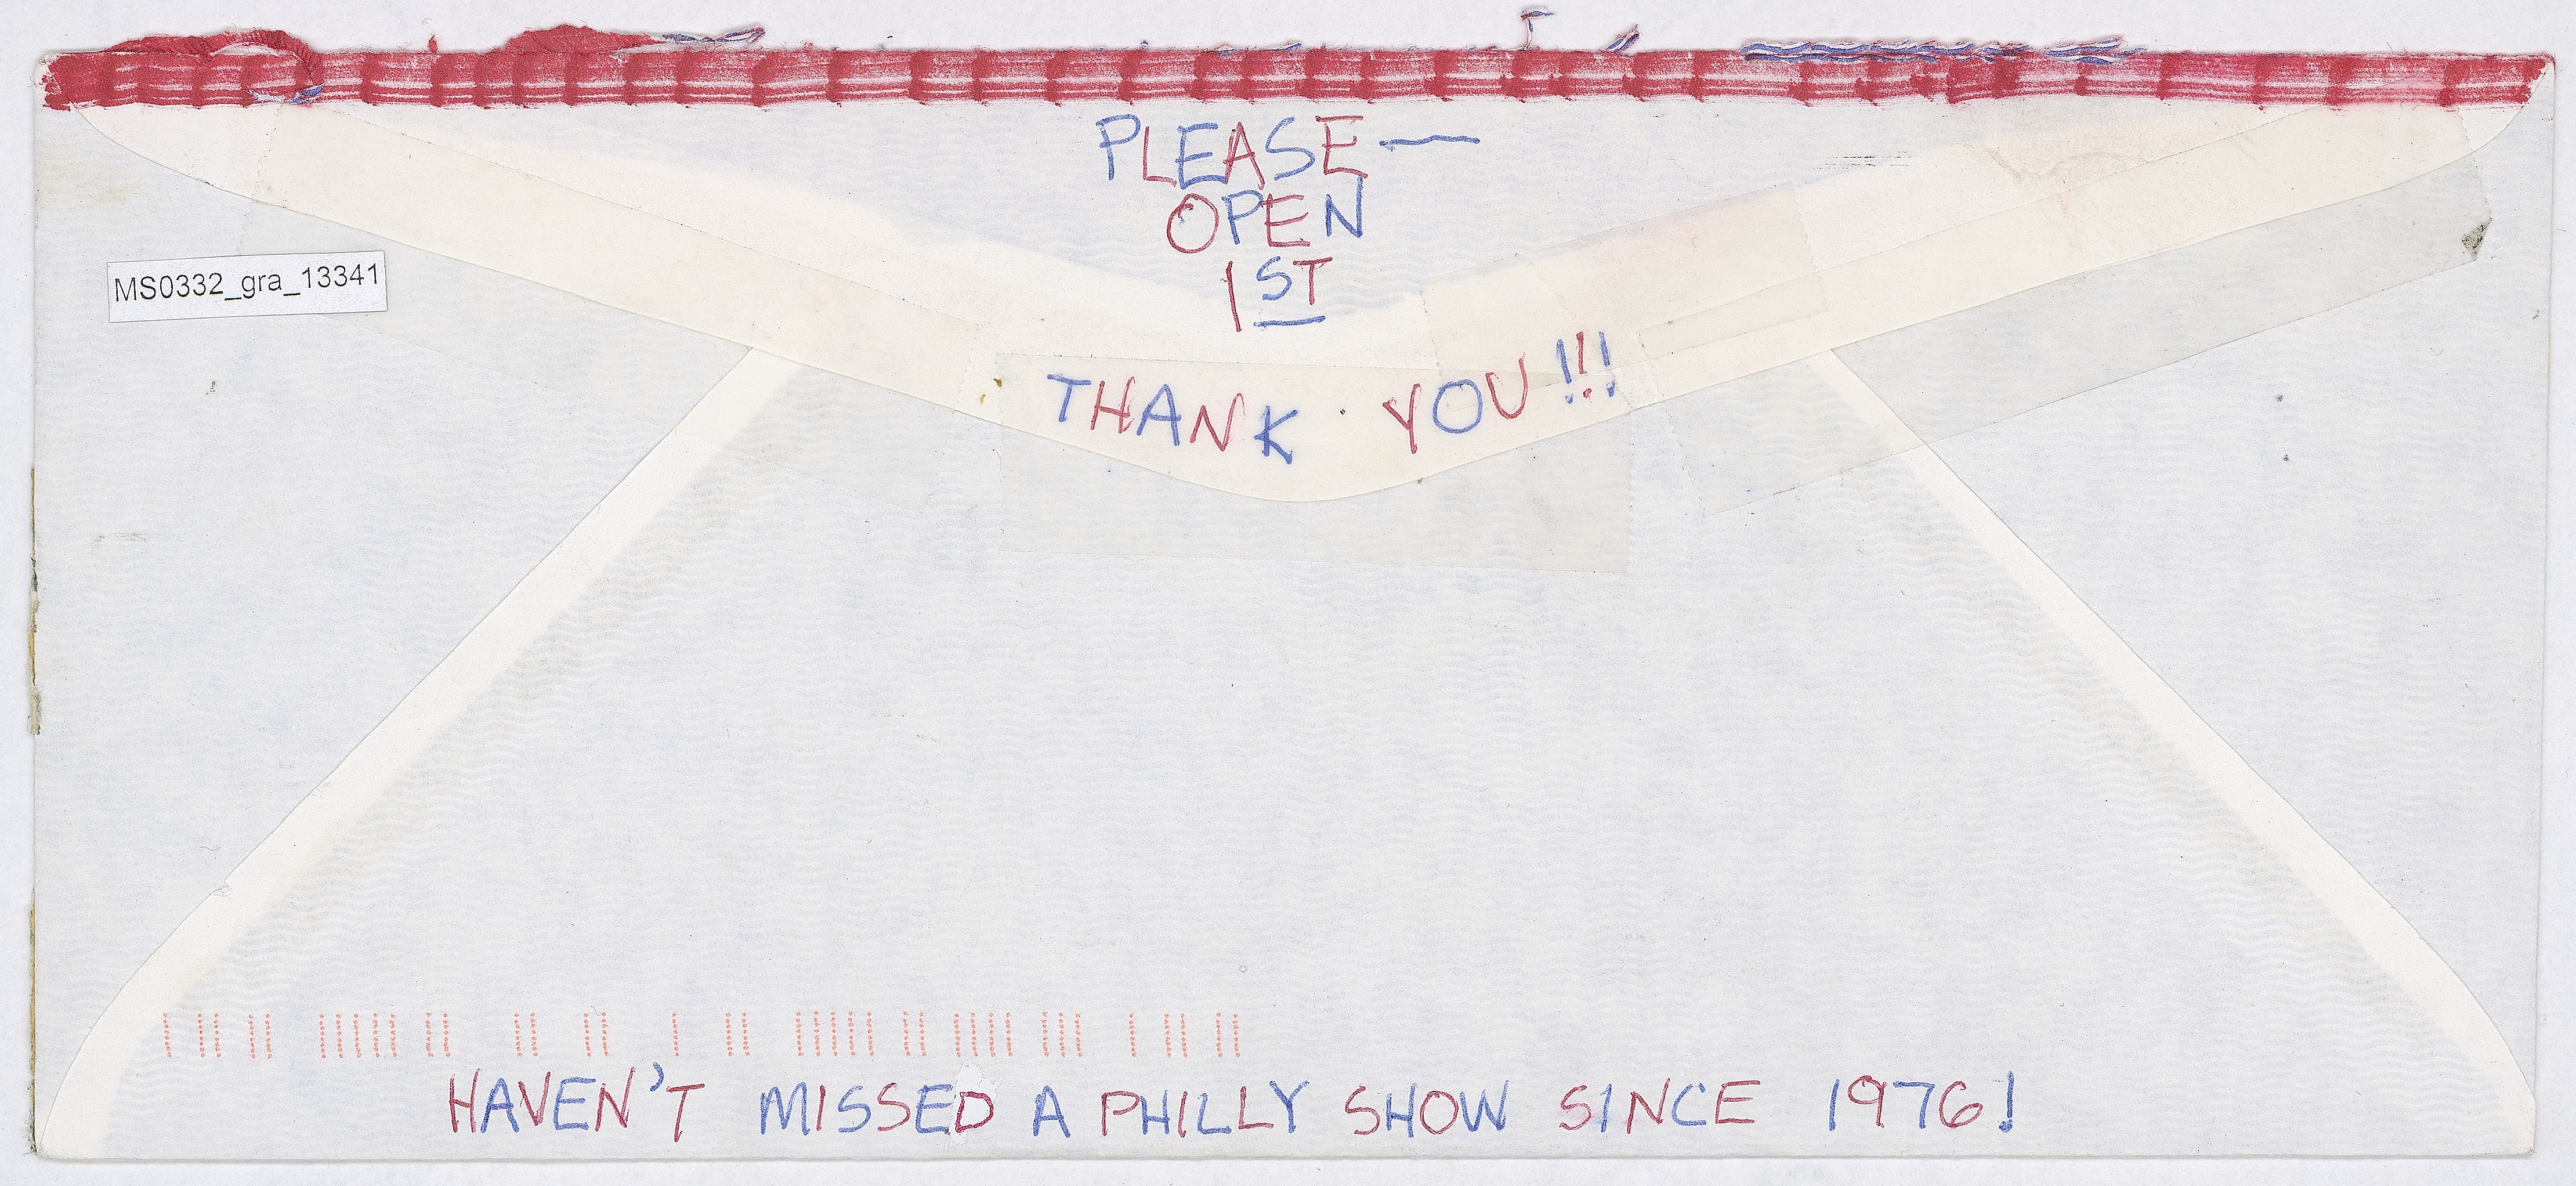 PLEASE—
OPEN
1ST
MS0332_gra_13341
THANK YOU!!!
HAVEN'T MISSED A PHILLY SHOW SINCE 1976!